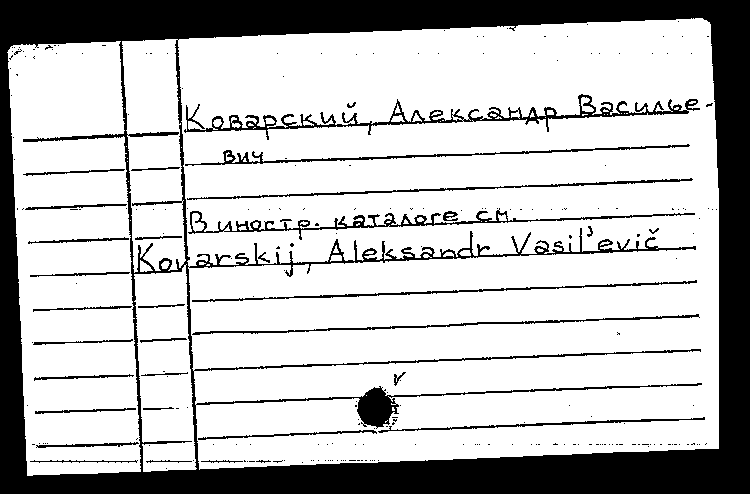 Коварский, Александр Василье-
вич
В иностр. каталоге см.
Kovarskij, Aleksandr Vasil'evič